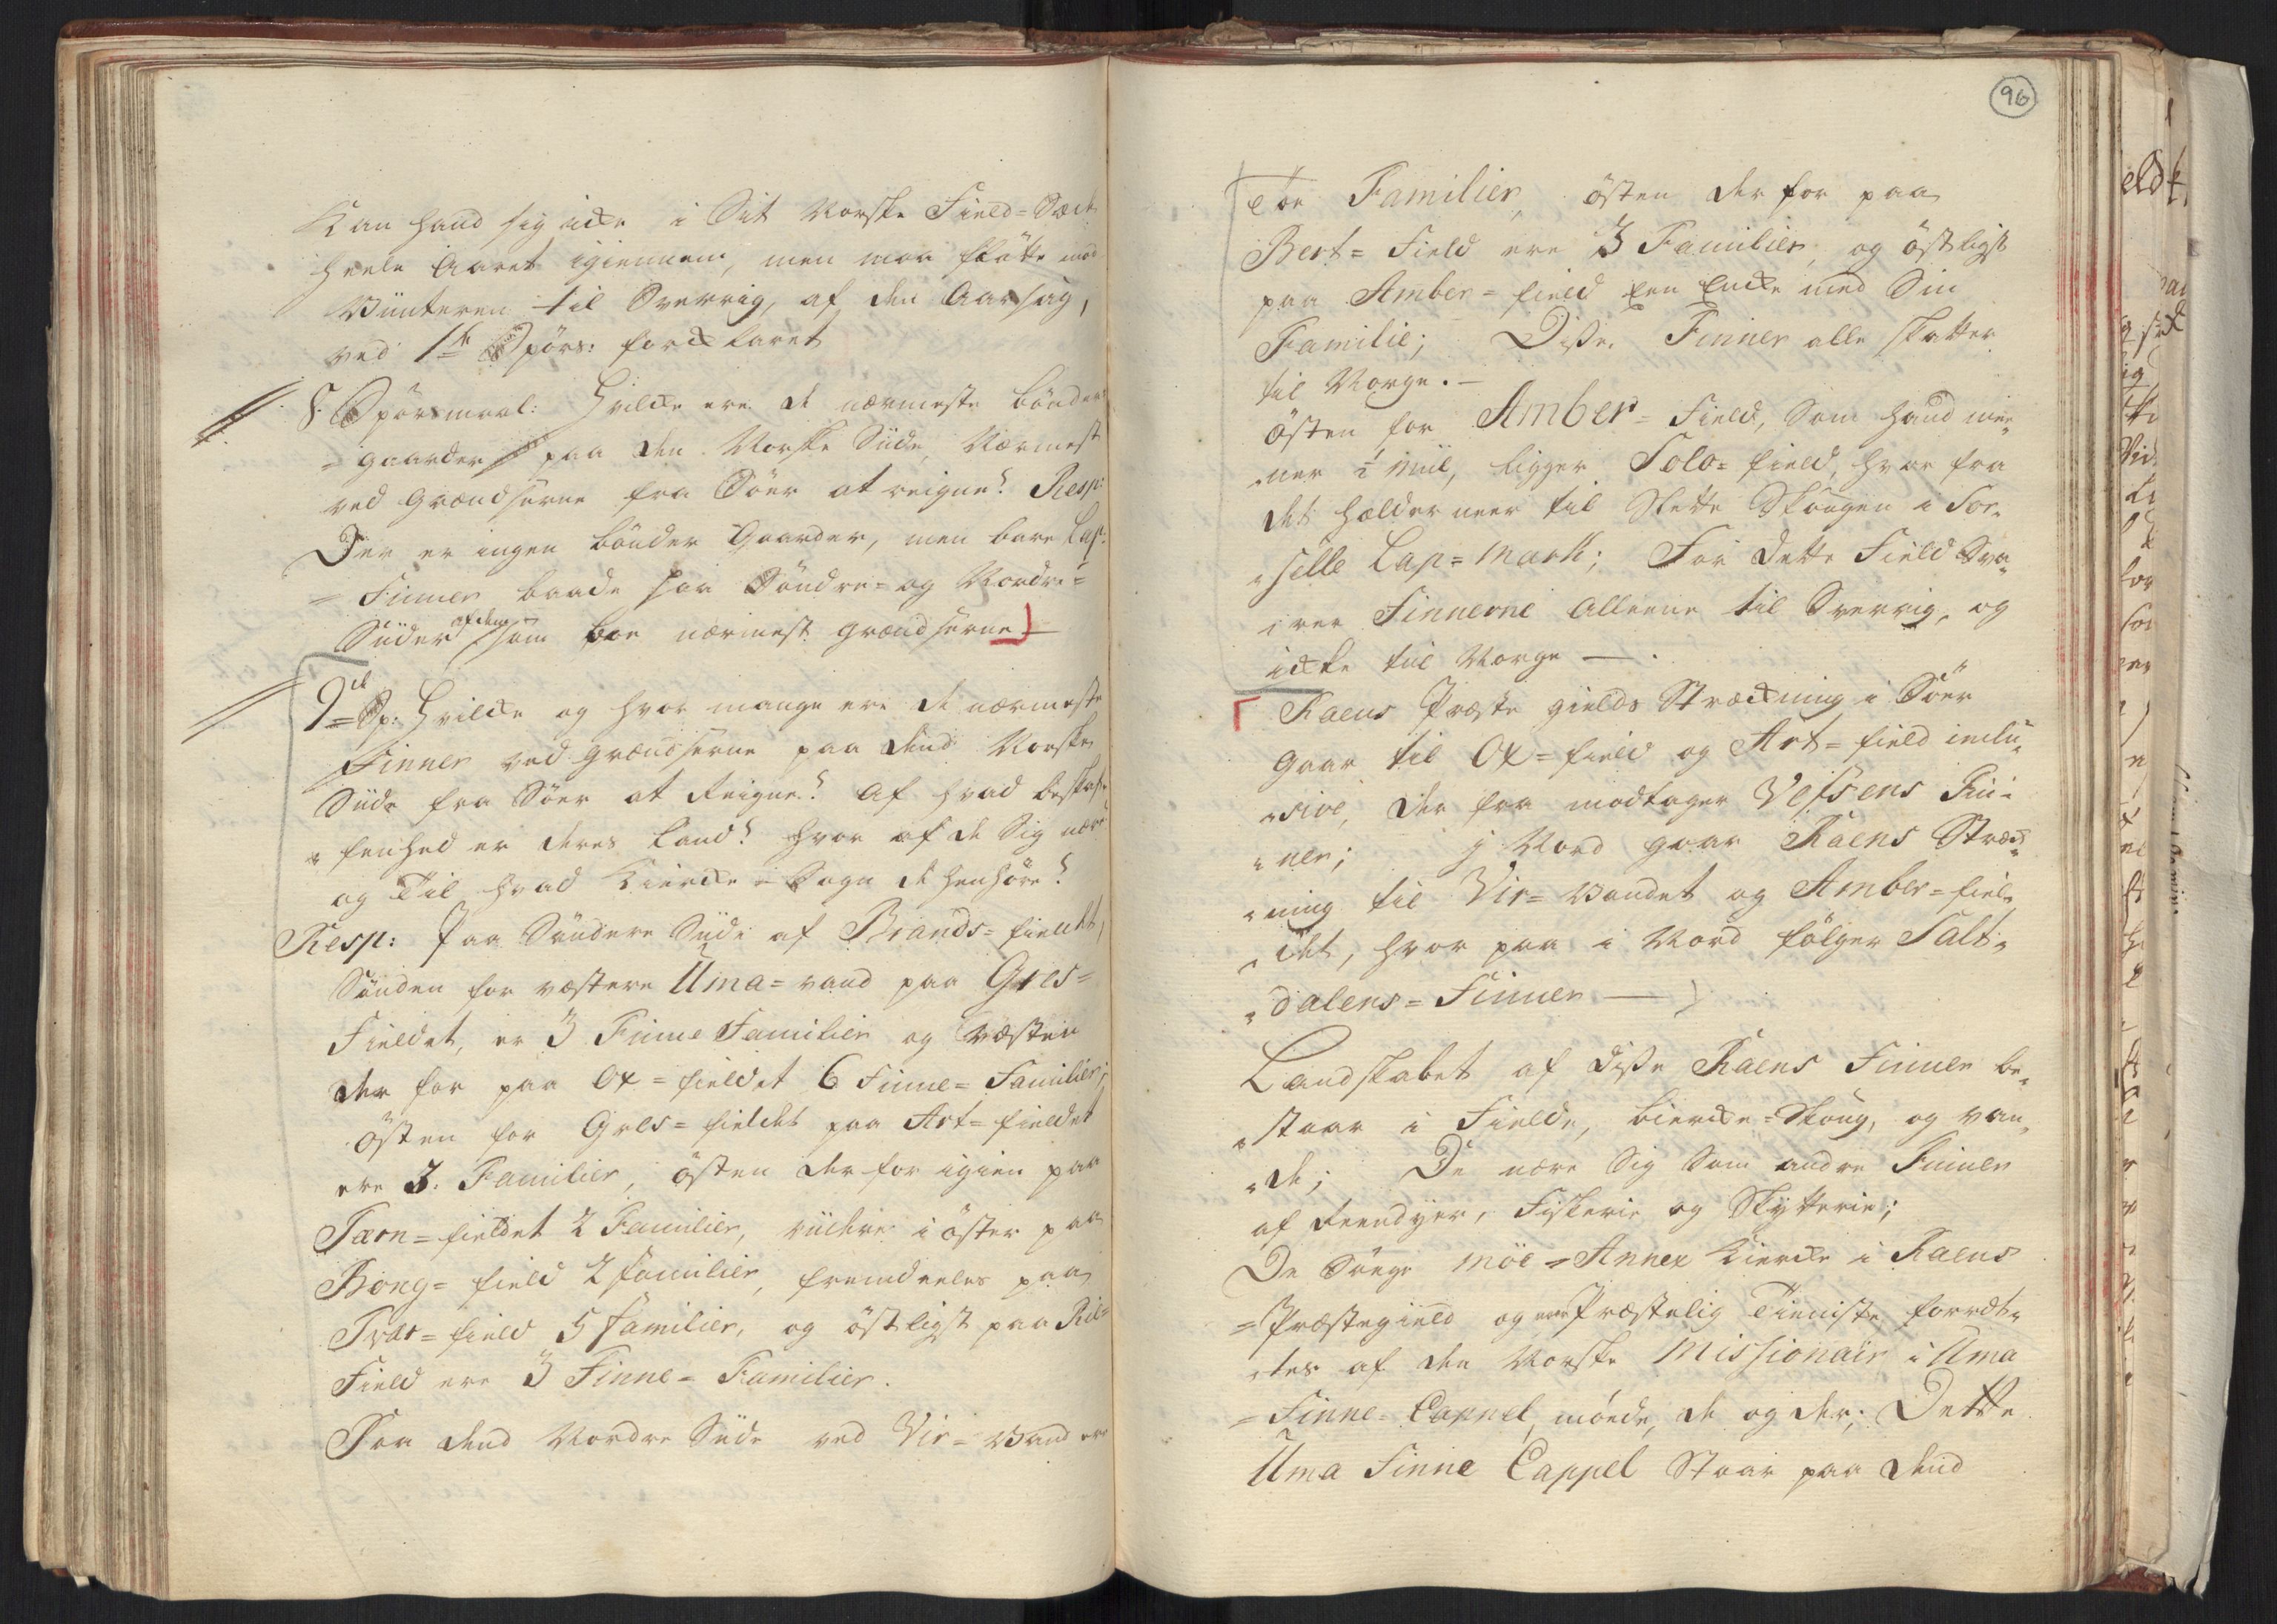 Kan hand sig icke i Sit Norske Field-Sæde
heele Aaret igiennem, men maa flötte mod
Vinteren til Sverrig, af den Aarsag,
ved 1te Spörs: forcklaret
8. Spörsmaal: Hvilcke ere de nærmeste bönder
= gaarder paa den Norske Siide, Nærmest
ved grændserne fra Söer at reigne? Resp:
Der er ingen bönder Gaarder, men bare Lap-
= Finner baade paa Söndre= og Nordre=
Siider af dem som boe nærmest grændserne —
9de Sp: Hvilcke og hvor mange ere de nærmeste
Finner ved grændserne paa dend Norske
Siide fra Söer at Reigne? Af hvad beskaf-
= fenhed er deres land? hvor af de Sig nære
og Til hvad Kiercke = Sogn de henhöre?
Resp: Paa Söndere Siide af Brands= fieldet,
Sönden for væstere Uma= vand paa Gres=
Fieldet, er 3 Finne Familier og væsten
der for paa Ox= fieldet 6 Finne= Familier;
östen for Gres= fieldet paa Art= fieldet
ere 3. Familier, östen der for igien paa
Tærn= fieldet 2 Familier, viidere i öster paa
Bong= field 2 familier, fremdeeles paa
Tvær= field 5 familier, og östligst paa
Field ere 3 Finne= Familier.
Paa dend Nordre Siide ved Vir= Vand ere
96
toe Familier, östen der for paa
Bert= Field ere 3 Familier, og östligst
paa Amber= field Een Encke med Sin
Familie; Disse Finner alle skatter
til Norge. —
östen for Amber= Field, Som hand mee-
=ner ½ Miil, ligger Solo= field, hvor fra
det hælder neer til Slette Skougen i Sor-
= selle Lap= Mark; For dette Field Sva-
rer Finnerne Alleene til Sverrig, og
icke til Norge — .
Raens Præste gields Stræckning i Söer
gaar til Ox= field og Art= field inclu-
=sive, der fra modtager Vefsens Fin-
=ner; i Nord gaar Raens Stræck-
=ning til Vir= Vandet og Amber= fiel-
=det, hvor paa i Nord fölger Salt-
= dalens= Finner —
Landskabet af disse Raens Finner be-
= staar i Fielde, bircke= Skoug, og van-
=de; De nære Sig Som andre Finner
af Reendyer, Fiskerie og Skytterie;
De Söege Möe= Annex Kiercke i Raens
= Præstegield og naar Præstelig Tieniste forret-
=tes af den Norske Missionair i Uma
= Finne= Cappel, möede, de og der; Dette
Uma Finne Cappel Staar paa dend